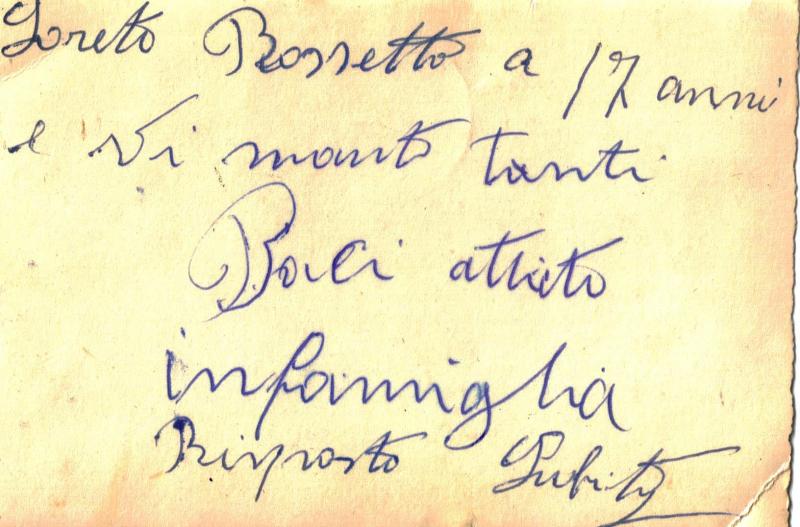 Loreto Rossetto a 17 anni
e vi manto tanti
Baci atteto
infamiglia
Risposto Subito